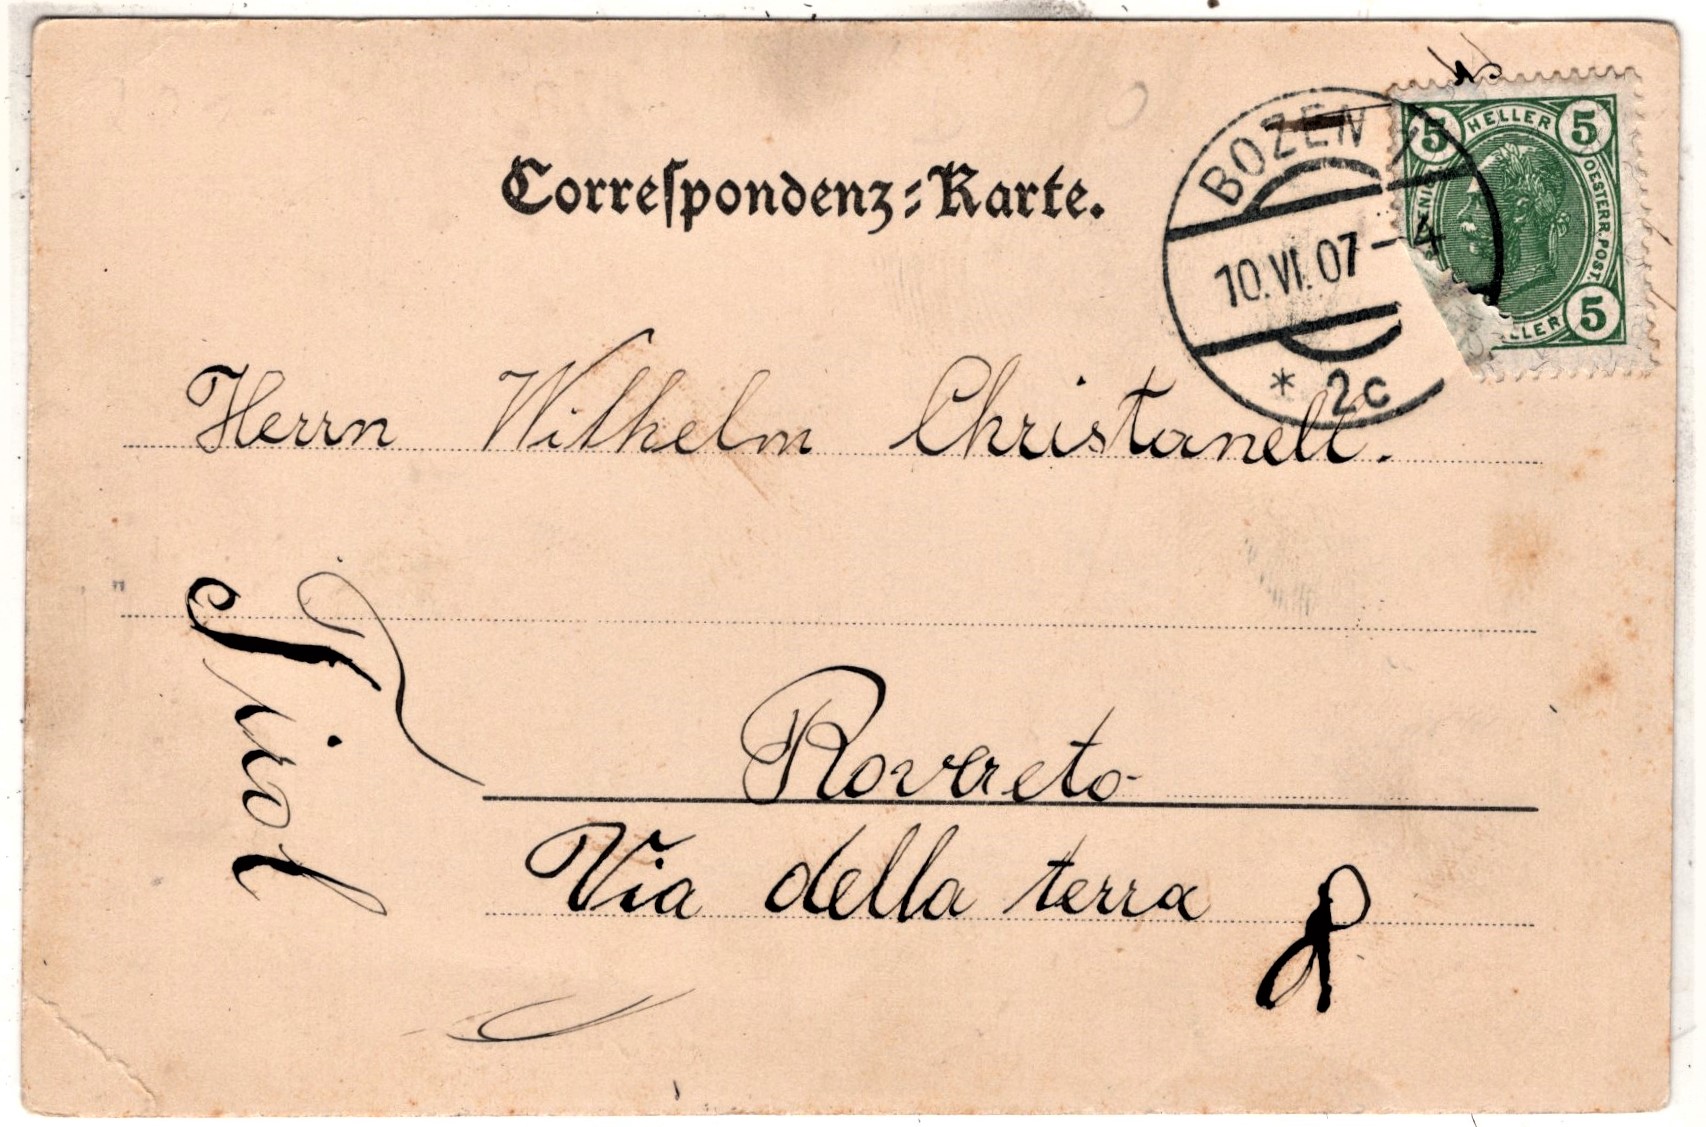 Correspondenz-Karte.
BOZEN 1
10.VI.07-4
* 2c
5 HELLER 5
OESTERR.POST.
5
Herrn Wilhelm Christanell.
Rovereto
Via della terra 8
Tirol